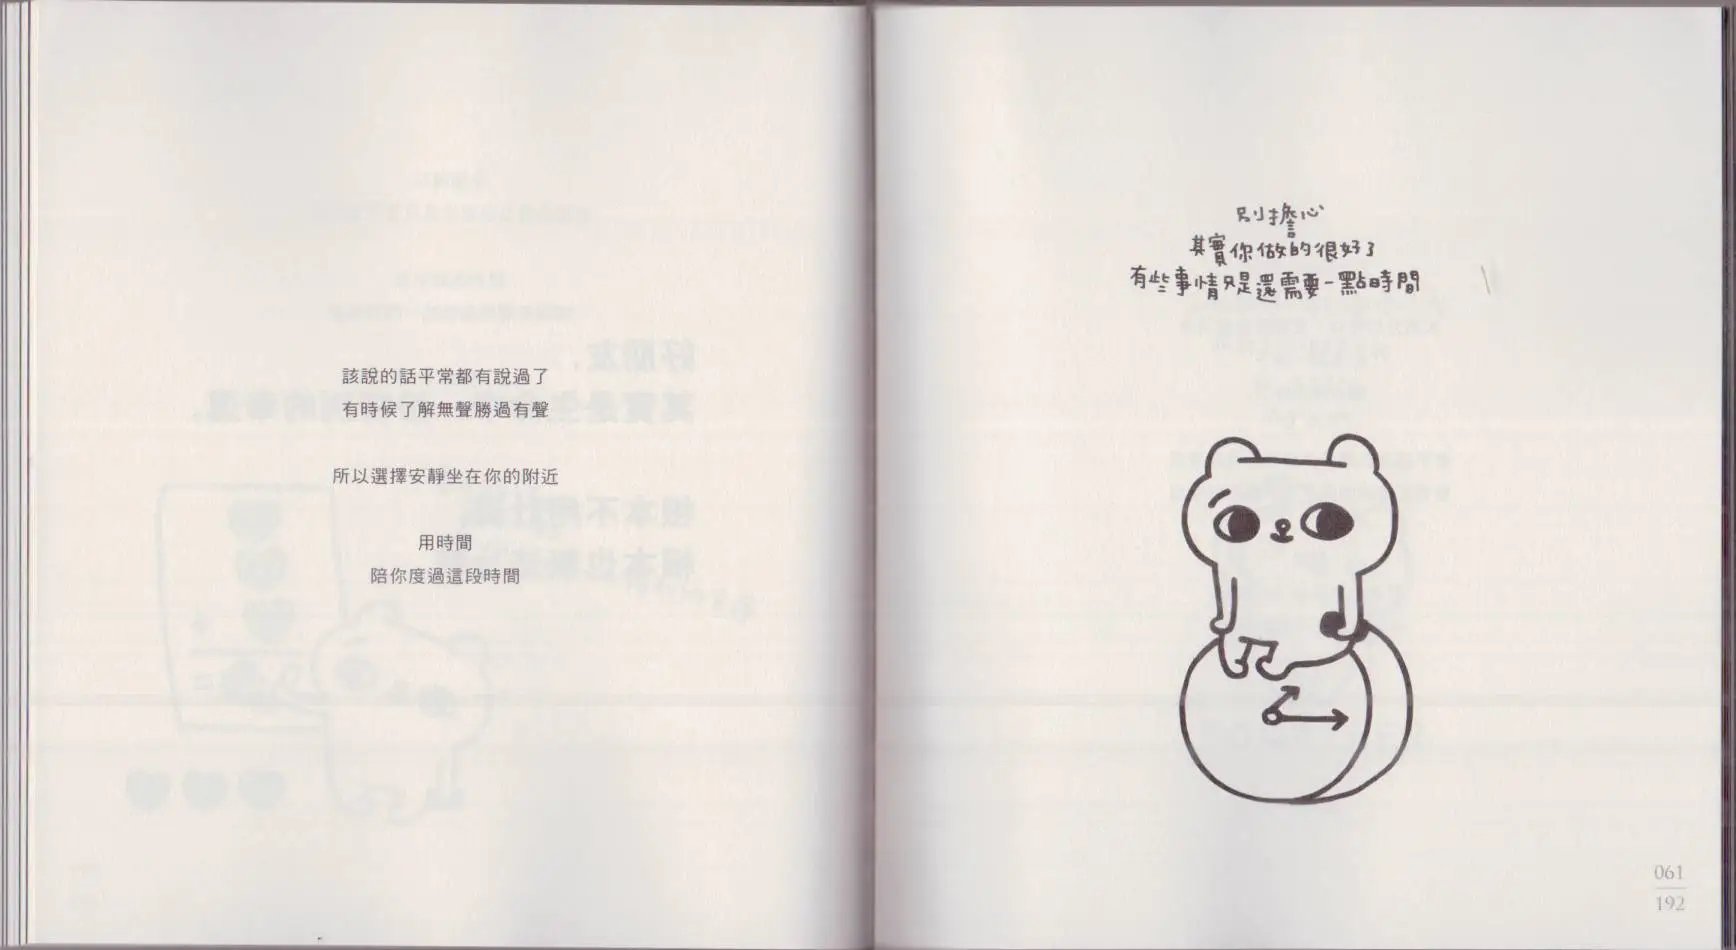 該說的話平常都有說過了
有時候了解無聲勝過有聲
所以選擇安靜坐在你的附近
用時間
陪你度過這段時間
別擔心
其實你做的很好了
有些事情只是還需要一點時間
061
192